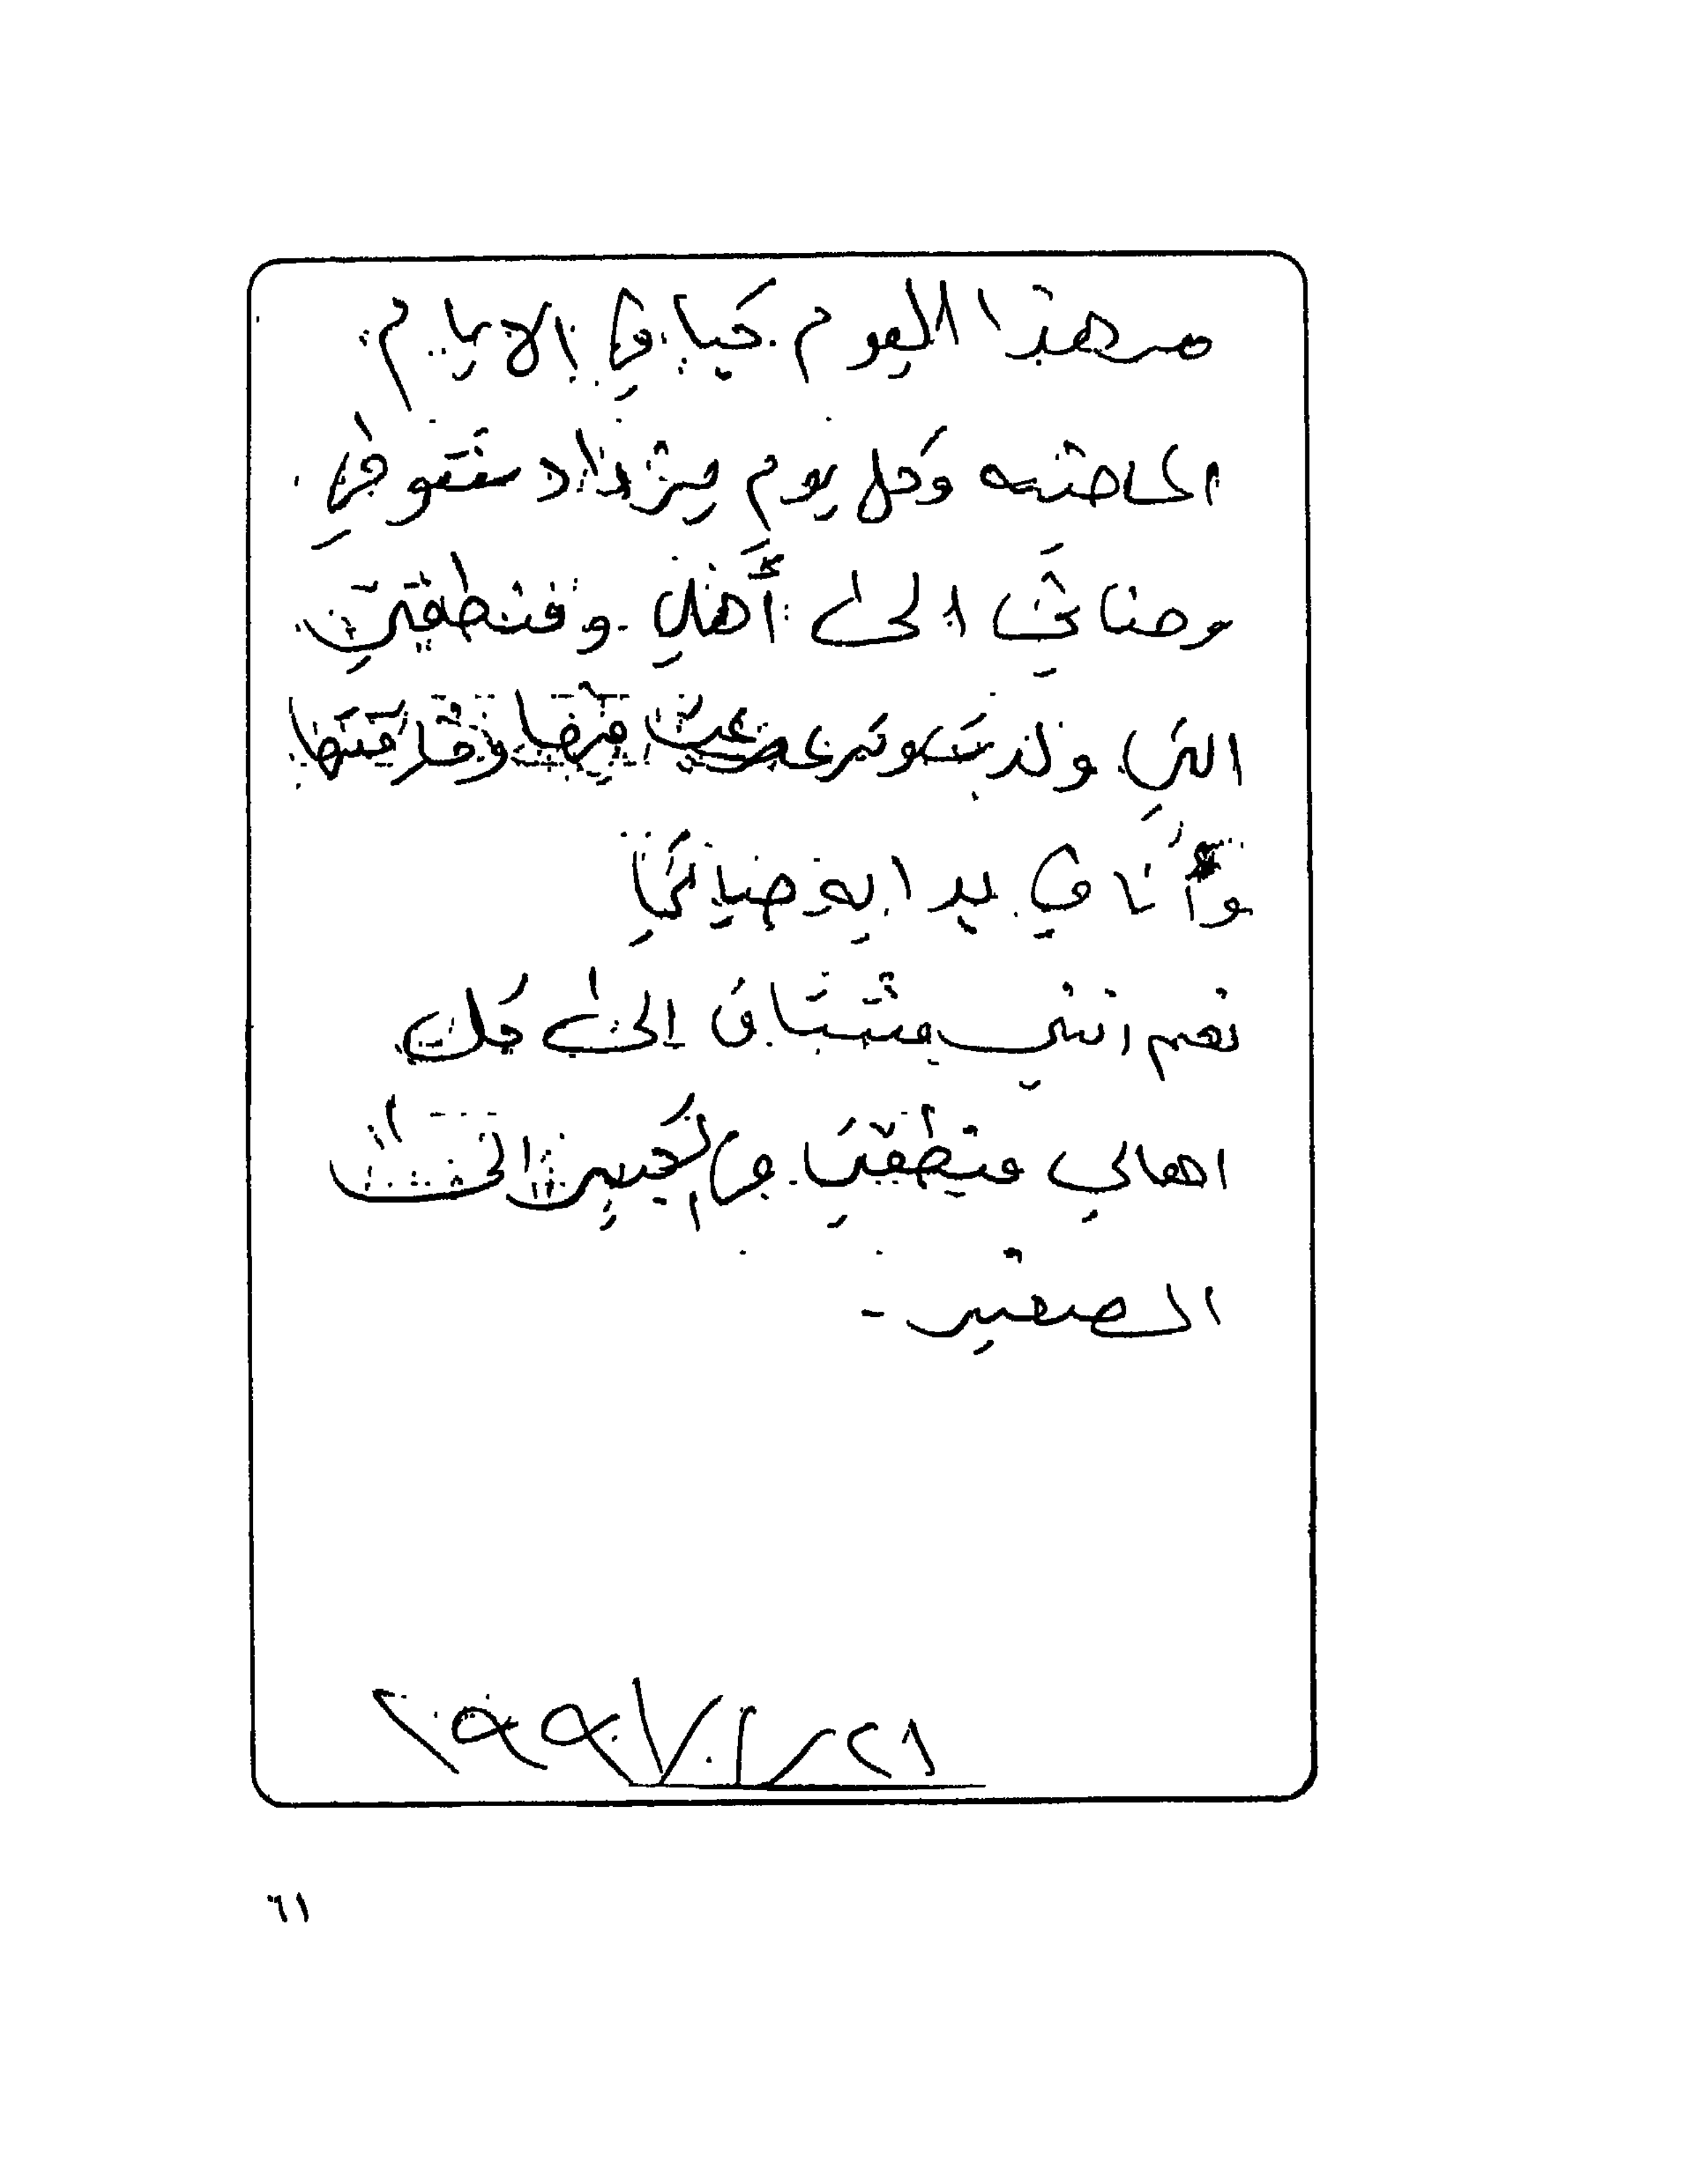 مر هذا اليوم كباقي الايام
الماضيه وكل يوم يزداد شوقي
وحناني الى أهلي ومنطقتي
التي ولدت وترعرعت فيها وفارقتها
وأنا في بداية حياتي
نعم انني مشتاق الى كل
اهالي منطقتي من الكبير الى
الصغير -
١٩٩٧/١/٢١
٦١